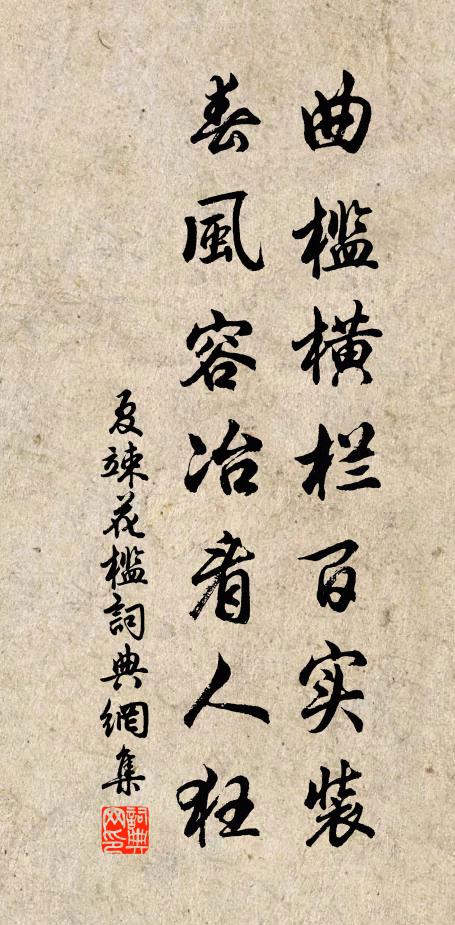 曲槛横栏百实装
春風容冶看人狂
夏竦花槛詞典網集
詞典網印